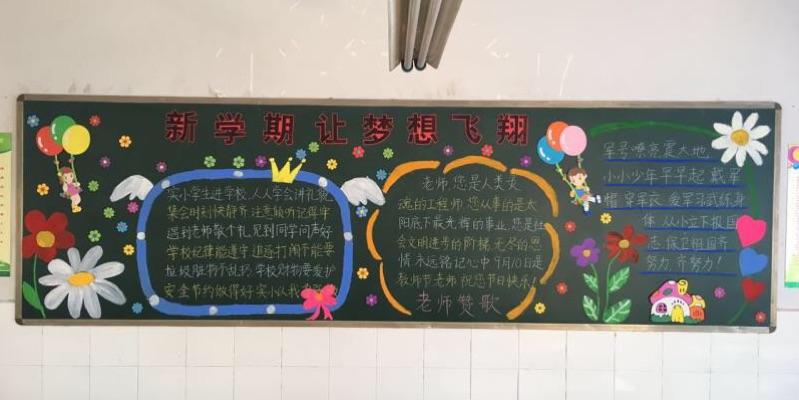 新学期 让梦想飞翔
实小学生进学校,人人学会讲礼貌
集会时刻快静齐 注意倾听记得牢
遇到老师敬个礼 见到同学问声好
学校纪律能遵守 追逐打闹不能要
垃圾脏物不乱扔 学校财物要爱护
安全节约做得好 实小从我
老师,您是人类灵
魂的工程师 您从事的是太
阳底下最光辉的事业,您是社
会文明进步的阶梯 无尽的恩
情 永远铭记心中 9月10日是
教师节老师 祝您节日快乐!
老师赞歌
军号嘹亮震大地
小小少年早早起 戴军
帽 穿军衣 爱军习武练身
体 从小立下报国
志 保卫祖国齐
努力 齐努力!